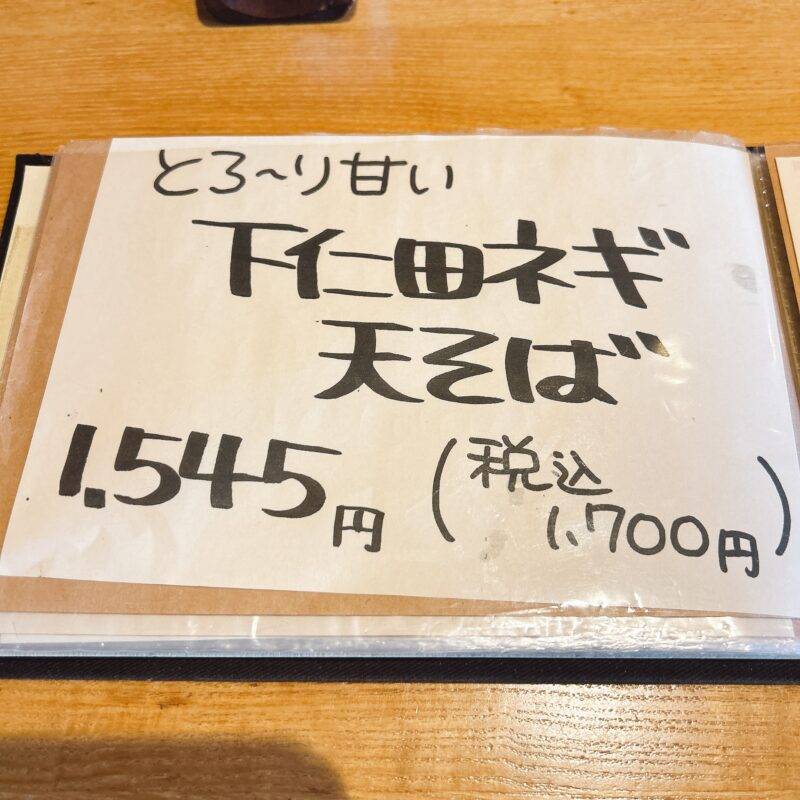 とろ〜り甘い
下仁田ネギ
天そば
1.545円 (税込
1,700円)